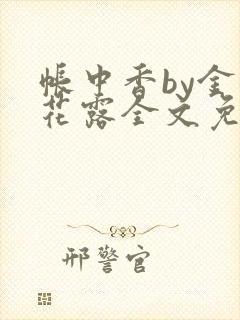 帐中香by金
花露全文免
邢警官